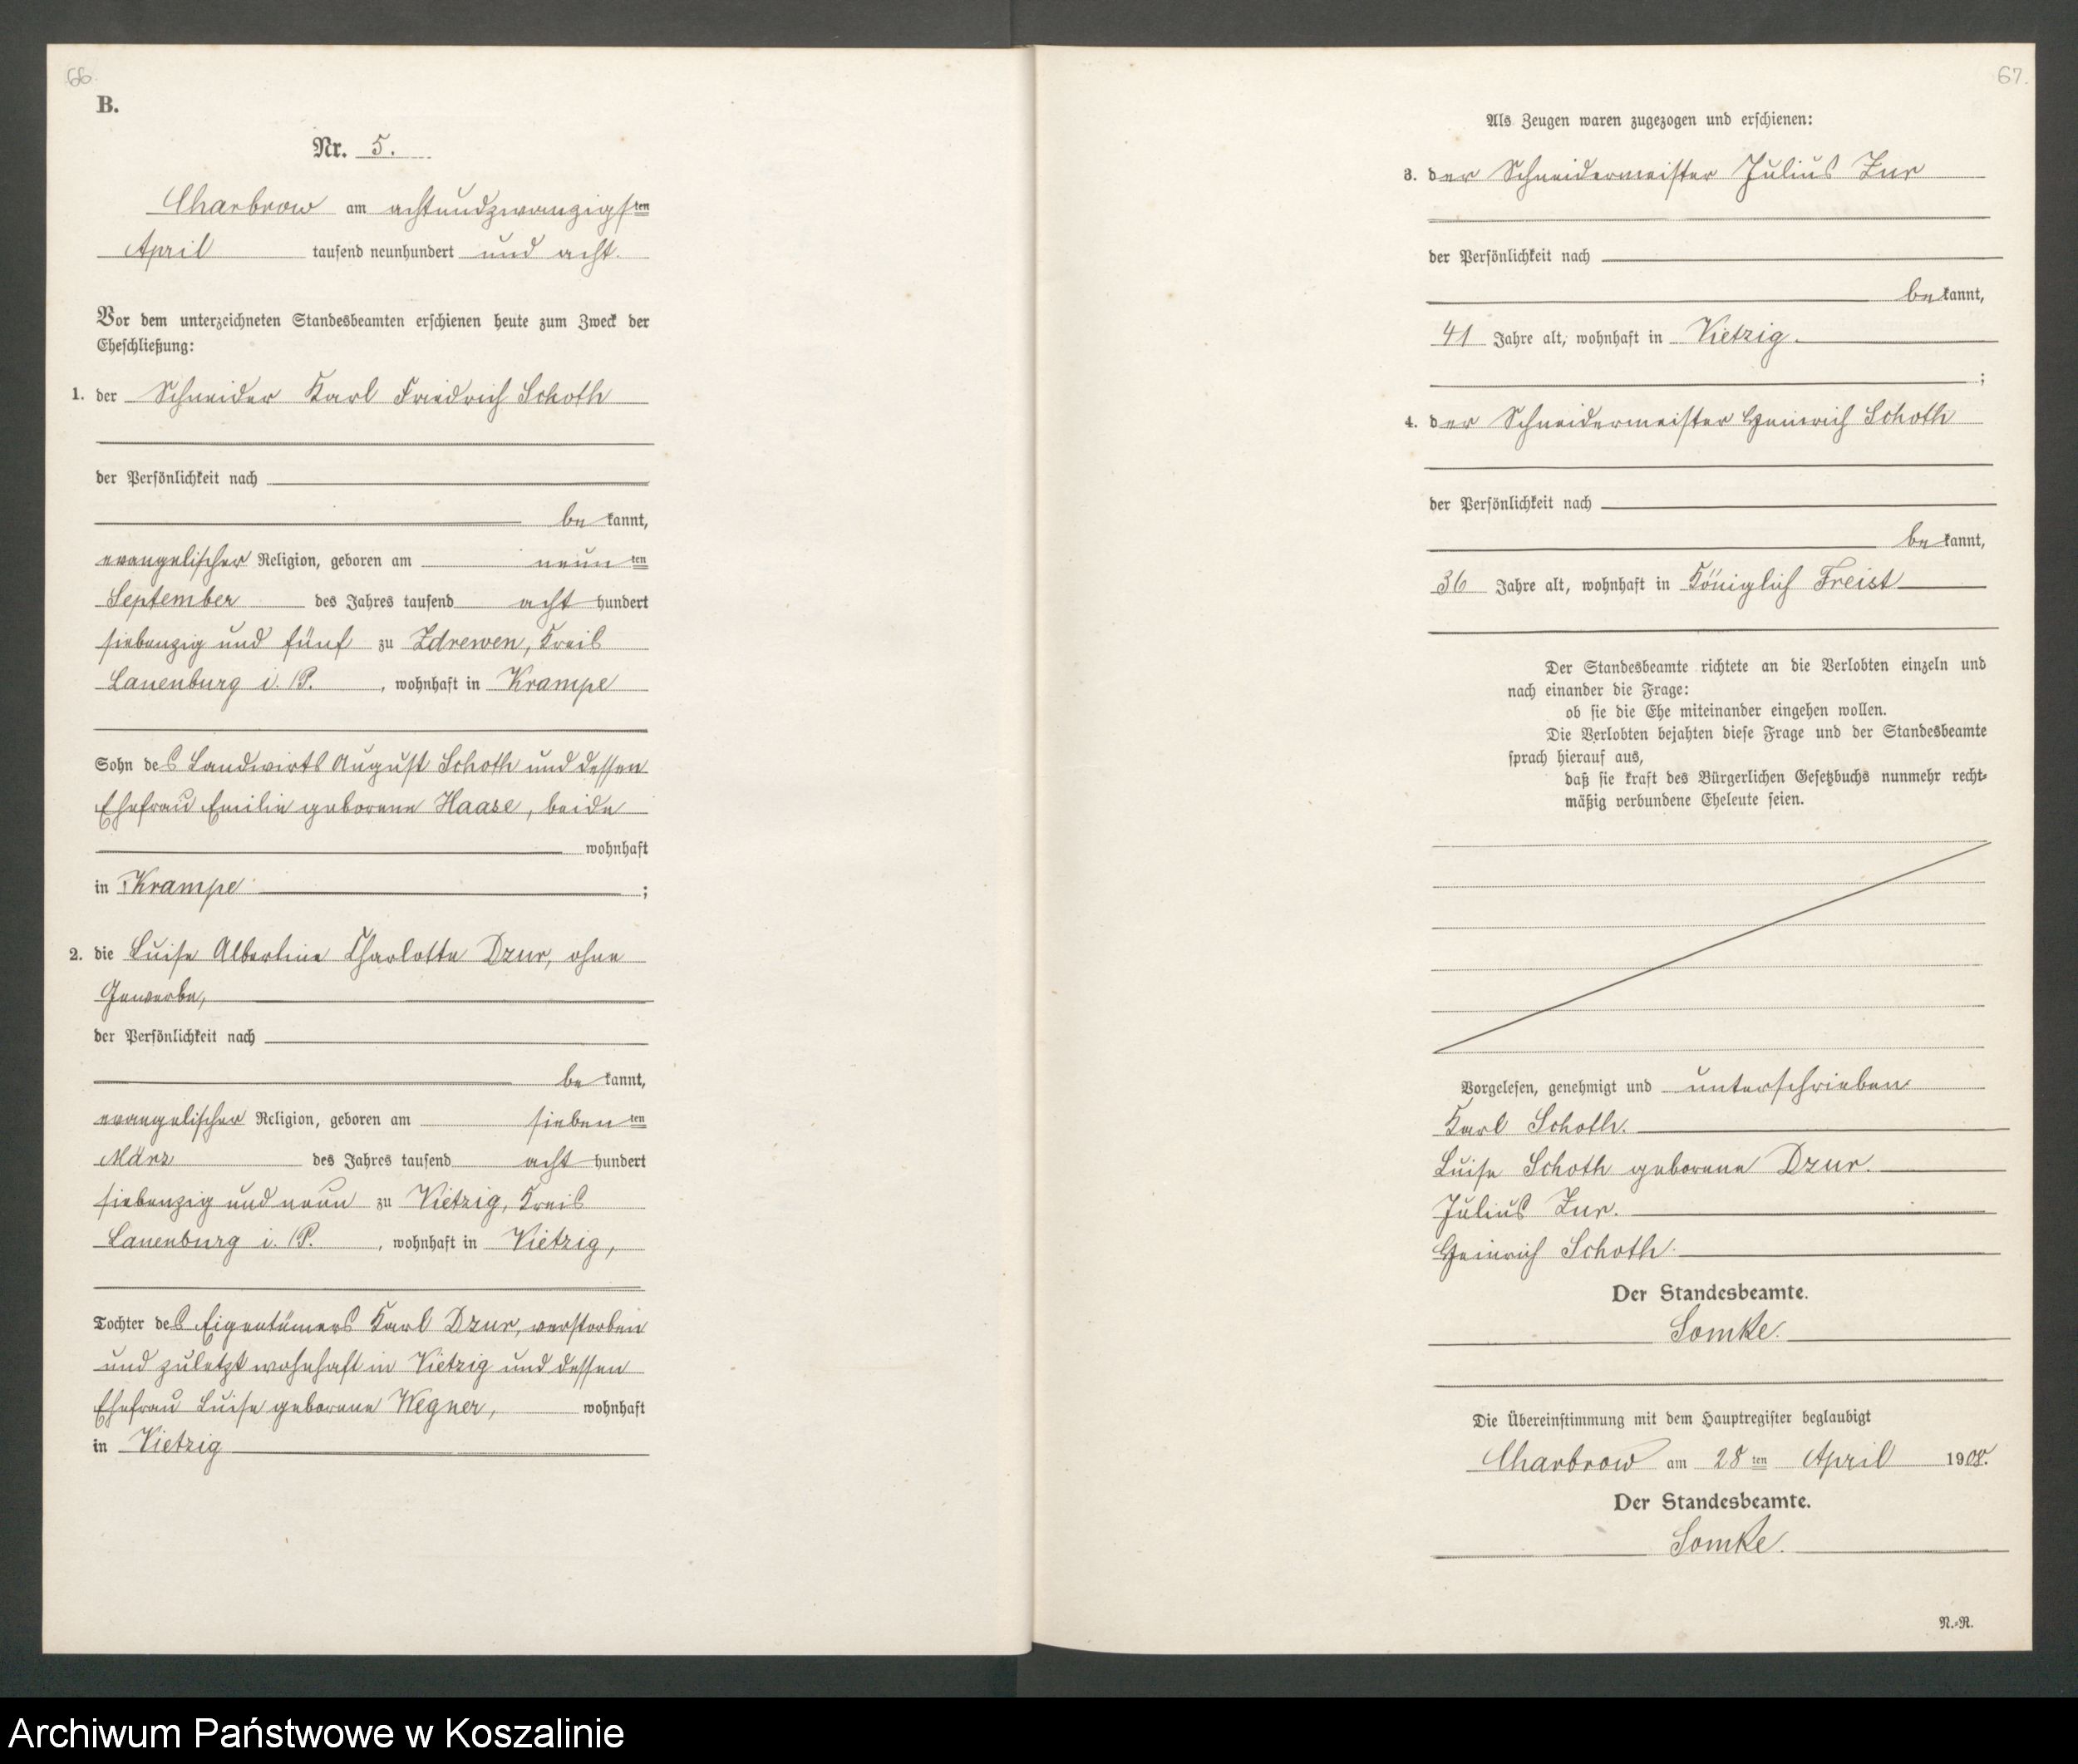 66.
B.
Nr. 5.
Charbrow am achtundzwanzigsten
April tausend neunhundert und acht.
Vor dem unterzeichneten Standesbeamten erschienen heute zum Zweck der
Eheschließung:
1. der Schneider Karl Friedrich Schoth
der Persönlichkeit nach
be kannt,
evangelischer Religion, geboren am neun ten
September des Jahres tausend acht hundert
siebenzig und fünf zu Zdrewen, Kreis
Lauenburg i. P. , wohnhaft in Krampe
Sohn des Landwirts August Schoth und dessen
Ehefrau Emilie geborene Haase, beide
wohnhaft
in Krampe ;
2. die Luise Albertine Charlotte Dzur, ohne
Gewerbe,
der Persönlichkeit nach
be kannt,
evangelischer Religion, geboren am sieben ten
März des Jahres tausend acht hundert
siebenzig und neun zu Vietzig, Kreis
Lauenburg i. P. , wohnhaft in Vietzig,
Tochter des Eigentümers Karl Dzur, verstorben
und zuletzt wohnhaft in Vietzig und dessen
Ehefrau Luise geborene Wegner, wohnhaft
in Vietzig
67.
Als Zeugen waren zugezogen und erschienen:
3. der Schneidermeister Julius Zur
der Persönlichkeit nach
be kannt,
41 Jahre alt, wohnhaft in Vietzig.
;
4. der Schneidermeister Heinrich Schoth
der Persönlichkeit nach
be kannt,
36 Jahre alt, wohnhaft in Königlich Freist
Der Standesbeamte richtete an die Verlobten einzeln und
nach einander die Frage:
ob sie die Ehe miteinander eingehen wollen.
Die Verlobten bejahten diese Frage und der Standesbeamte
sprach hierauf aus,
daß sie kraft des Bürgerlichen Gesetzbuchs nunmehr recht-
mäßig verbundene Eheleute seien.
Vorgelesen, genehmigt und unterschrieben
Karl Schoth.
Luise Schoth geborene Dzur.
Julius Zur.
Heinrich Schoth.
Der Standesbeamte.
Somke.
Die Übereinstimmung mit dem Hauptregister beglaubigt
Charbrow am 28 ten April 1908.
Der Standesbeamte.
Somke.
N.-R.
Archiwum Państwowe w Koszalinie